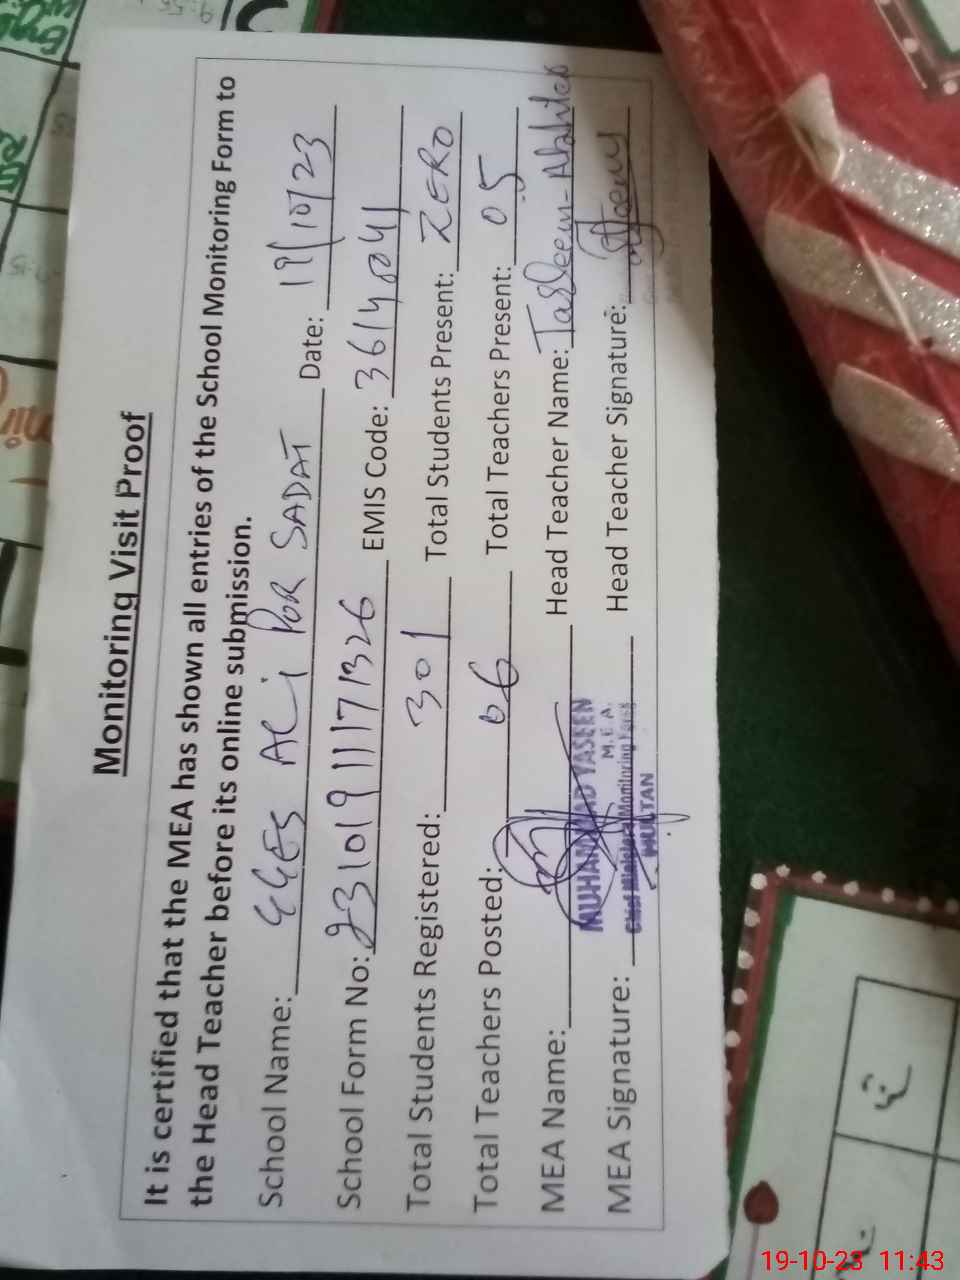 Monitoring Visit Proof
It is certified that the MEA has shown all entries of the School Monitoring Form to
the Head Teacher before its online submission.
School Name: GGES ALi PUR SADAT Date: 19/10/23
School Form No: 23101911171326 EMIS Code:
Total Students Registered: 301 Total Students Present: ZERO
Total Teachers Posted: 06 Total Teachers Present: 05
MEA Name: MUHAMMAD YASEEN Head Teacher Name: Tasleem-Akhtar
M.E.A.
MEA Signature: Chief Minister's Monitoring Force Head Teacher Signature:
MULTAN
19-10-23 11:43